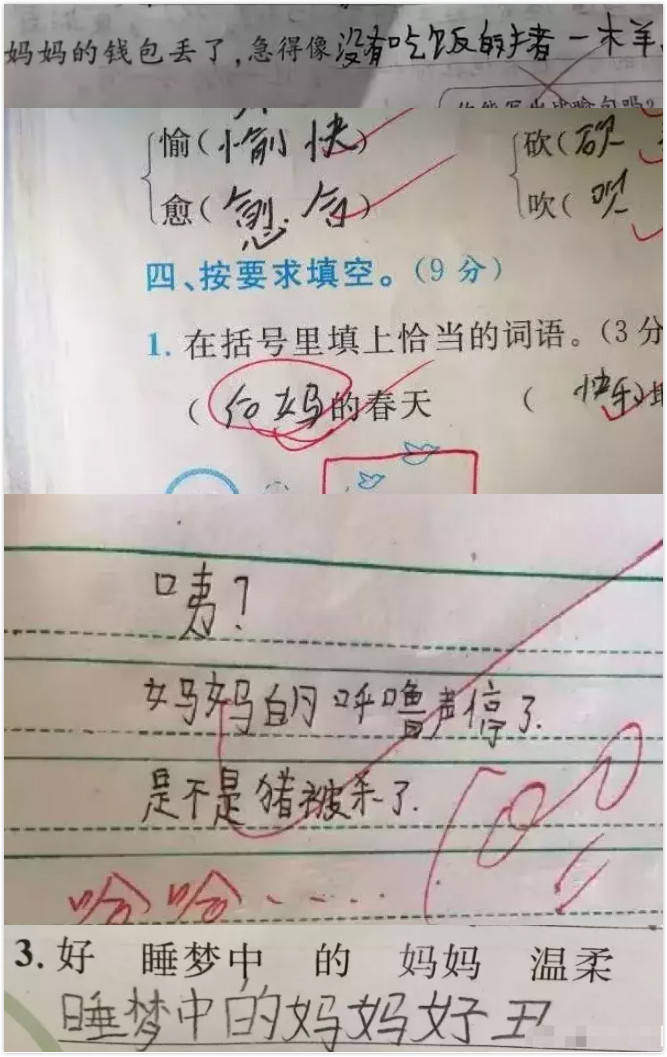 妈妈的钱包丢了,急得像没有吃饭的老一木羊
愉(愉快) 砍(砍
愈(愈合) 吹(吹
四、按要求填空。(9分)
1. 在括号里填上恰当的词语。(3分
(后妈的春天 (快乐)地
咦?
妈妈的呼噜声停了.
是不是猪被杀了.
哈哈.....
100
3. 好 睡梦中 的 妈妈 温柔
睡梦中的妈妈好丑